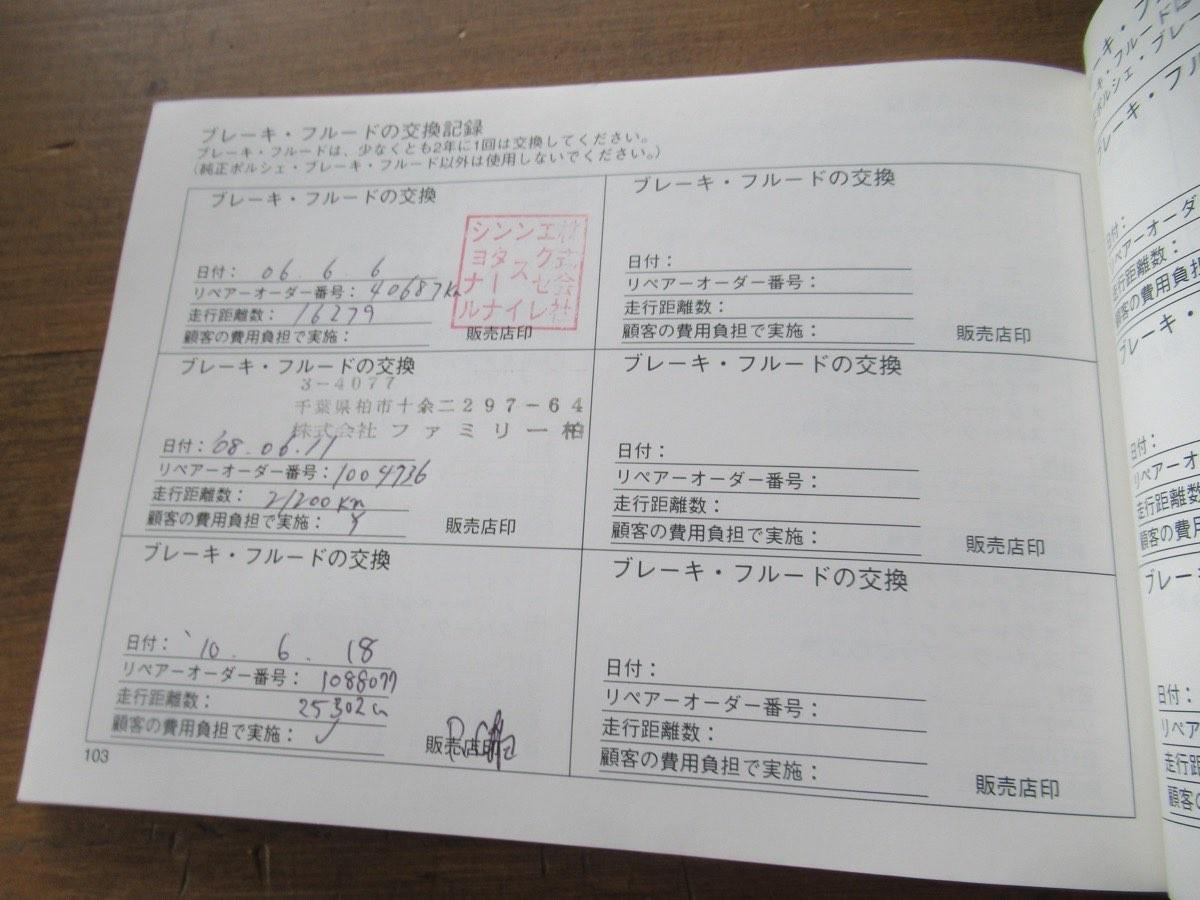 ブレーキ・フルードの交換記録
ブレーキ・フルードは、少なくとも2年に1回は交換してください。
(純正ポルシェ・ブレーキ・フルード以外は使用しないでください。)
ブレーキ・フルードの交換
日付： 06. 6. 6
リペアーオーダー番号： 40687Km
走行距離数： 16279
顧客の費用負担で実施：
販売店印
シンンエ株
ヨタスク式
ナーゼ会
ルイナレ社
ブレーキ・フルードの交換
3-4077
千葉県柏市十余二297-64
株式会社 ファミリー柏
日付： '08.06.11
リペアーオーダー番号： 1004736
走行距離数： 21200Km
顧客の費用負担で実施： y
販売店印
ブレーキ・フルードの交換
日付： '10. 6. 18
リペアーオーダー番号： 1088077
走行距離数： 25302
顧客の費用負担で実施：
販売店印
103
ブレーキ・フルードの交換
日付：
リペアーオーダー番号：
走行距離数：
顧客の費用負担で実施：
販売店印
ブレーキ・フルードの交換
日付：
リペアーオーダー番号：
走行距離数：
顧客の費用負担で実施：
販売店印
ブレーキ・フルードの交換
日付：
リペアーオーダー番号：
走行距離数：
顧客の費用負担で実施：
販売店印